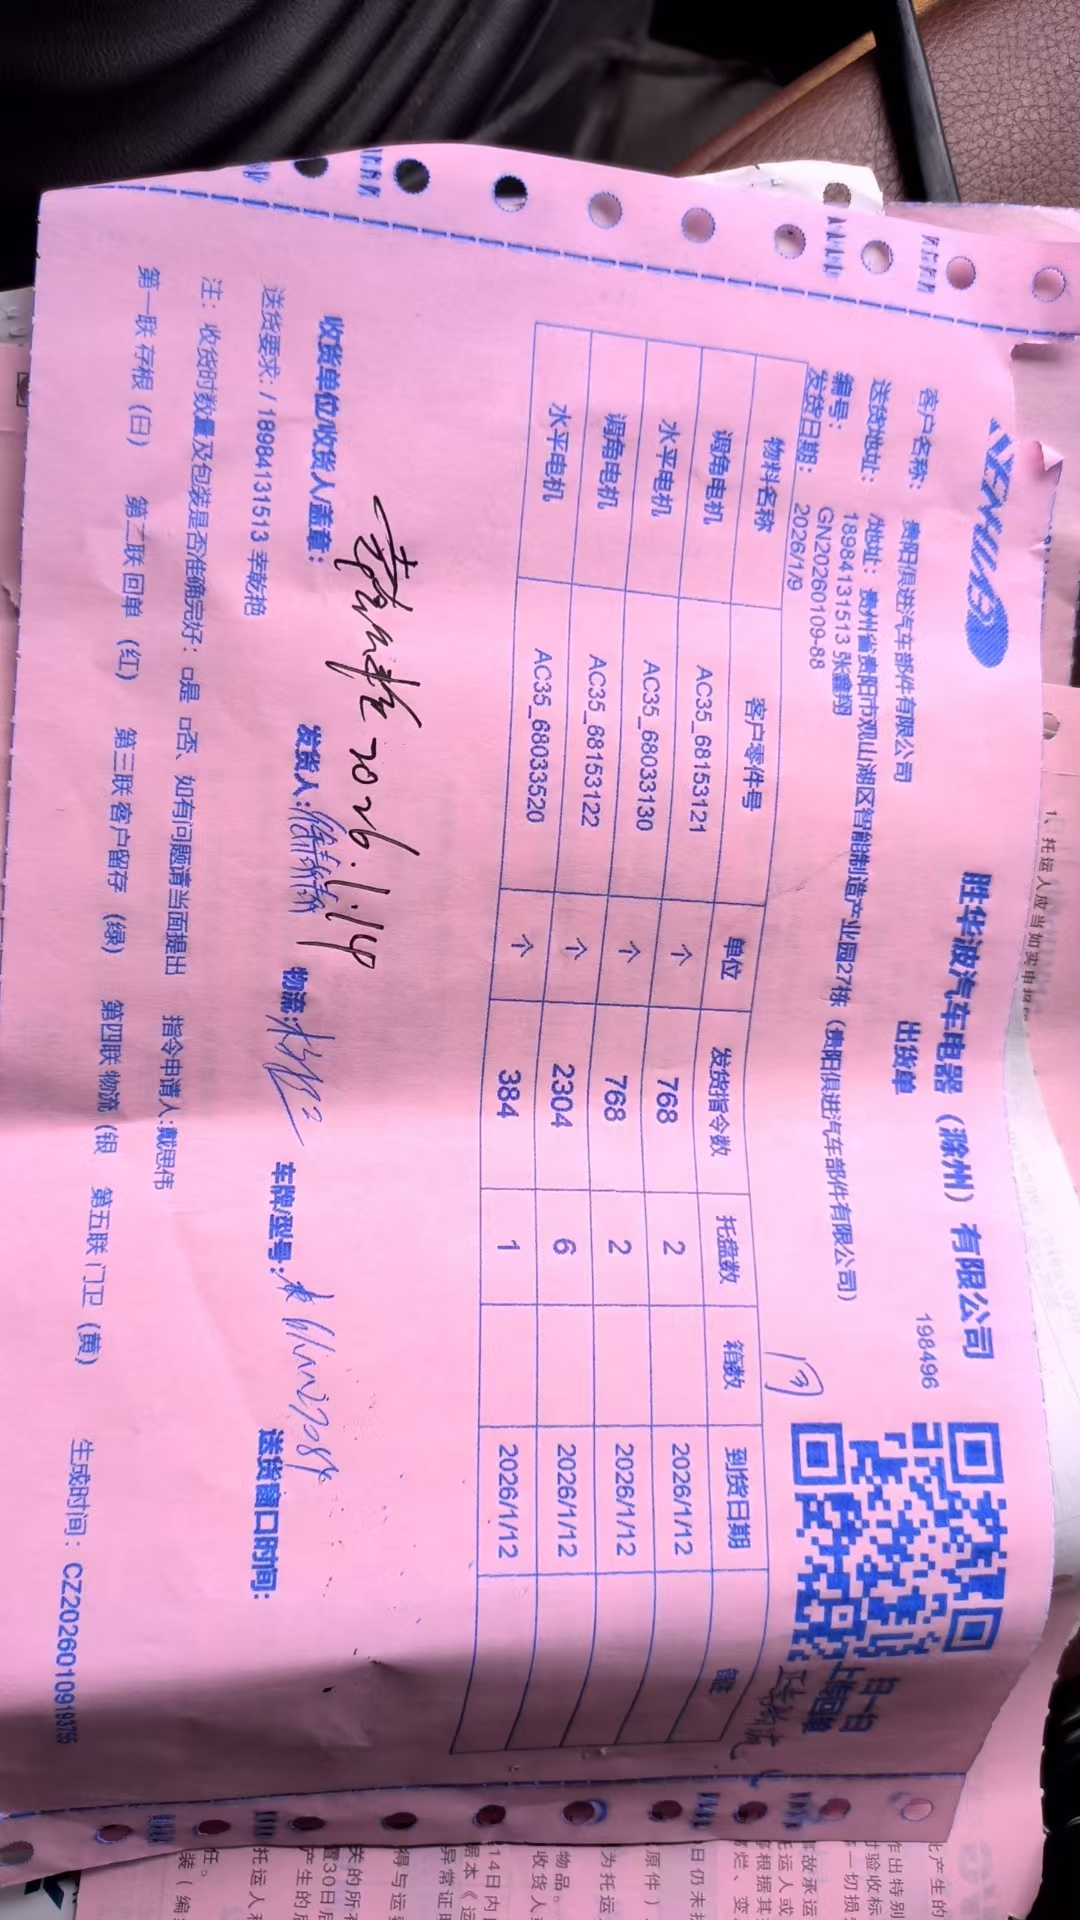 胜华波汽车电器（滁州）有限公司
出货单
198496
客户名称： 贵阳俱进汽车部件有限公司
送货地址： /地址：贵州省贵阳市观山湖区智能制造产业园27栋（贵阳俱进汽车部件有限公司）
18984131513 张鑫翔
编号： GN20260109-88
发货日期： 2026/1/9
13
物料名称 客户零件号 单位 发货指令数 托盘数 箱数 到货日期 备注
调角电机 AC35_68153121 个 768 2 2026/1/12
水平电机 AC35_68033130 个 768 2 2026/1/12
调角电机 AC35_68153122 个 2304 6 2026/1/12
水平电机 AC35_68033520 个 384 1 2026/1/12
2026.1.14
收货单位/收货人/盖章： 发货人: 物流: 车牌/型号: 送货窗口时间:
送货要求: / 18984131513 幸乾艳
注：收货时数量及包装是否准确完好：□是 □否、如有问题请当面提出 指令申请人:戴思伟
第一联 存根（白） 第二联 回单（红） 第三联 客户留存（绿） 第四联 物流（银 第五联 门卫（黄） 生成时间：CZ20260109193755
1、托运人应当如实申报